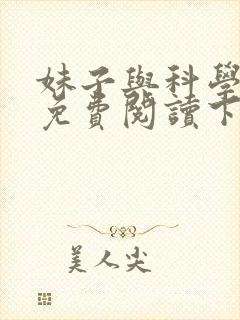 妹子與科學
免費閱讀下
美人尖